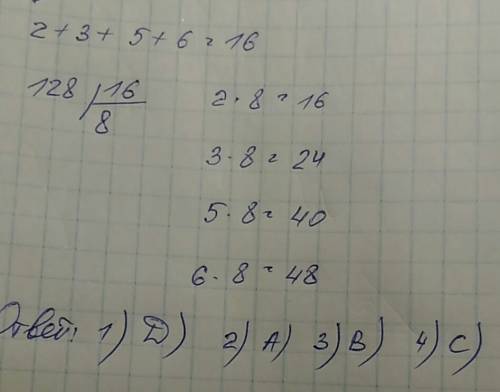 2 + 3 + 5 + 6 = 16
128 | 16
8
2 · 8 = 16
3 · 8 = 24
5 · 8 = 40
6 · 8 = 48
Ответ: 1) D) 2) A) 3) B) 4) C)